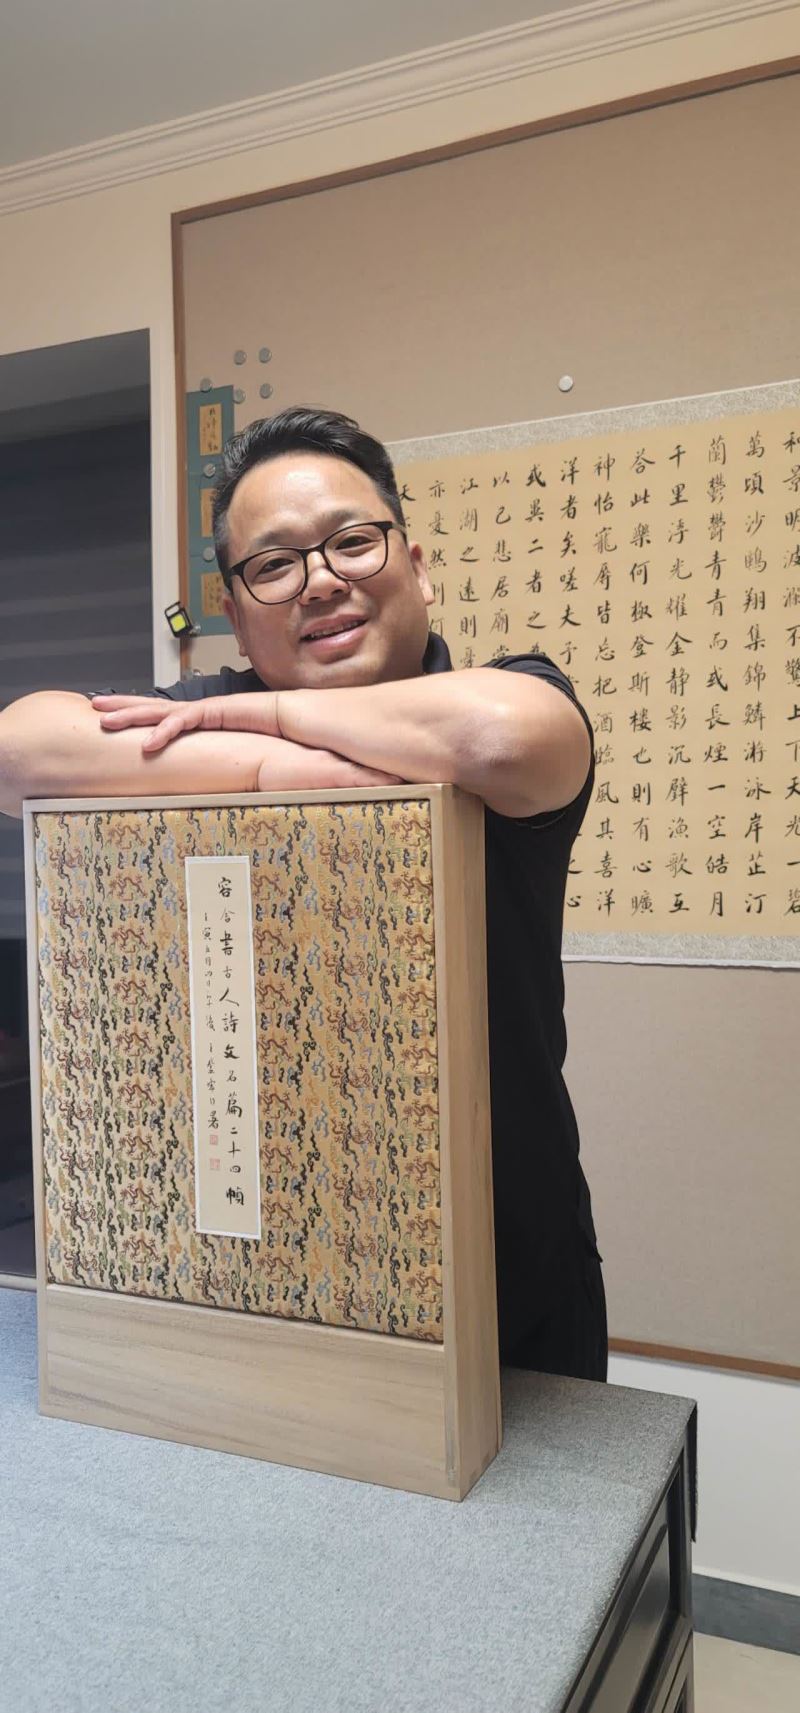 容合書古人詩文名篇二十四幀
壬寅五月四日午後
和景明波瀾不驚上下天光一碧
萬頃沙鷗翔集錦鱗游泳岸芷汀
蘭鬱鬱青青而或長煙一空皓月
千里浮光耀金靜影沉璧漁歌互
荅此樂何極登斯樓也則有心曠
神怡寵辱皆忘把酒臨風其喜洋
洋者矣嗟夫予
心
或異二者之為
以己悲居廟堂
江湖之遠則憂
亦憂然則何
天